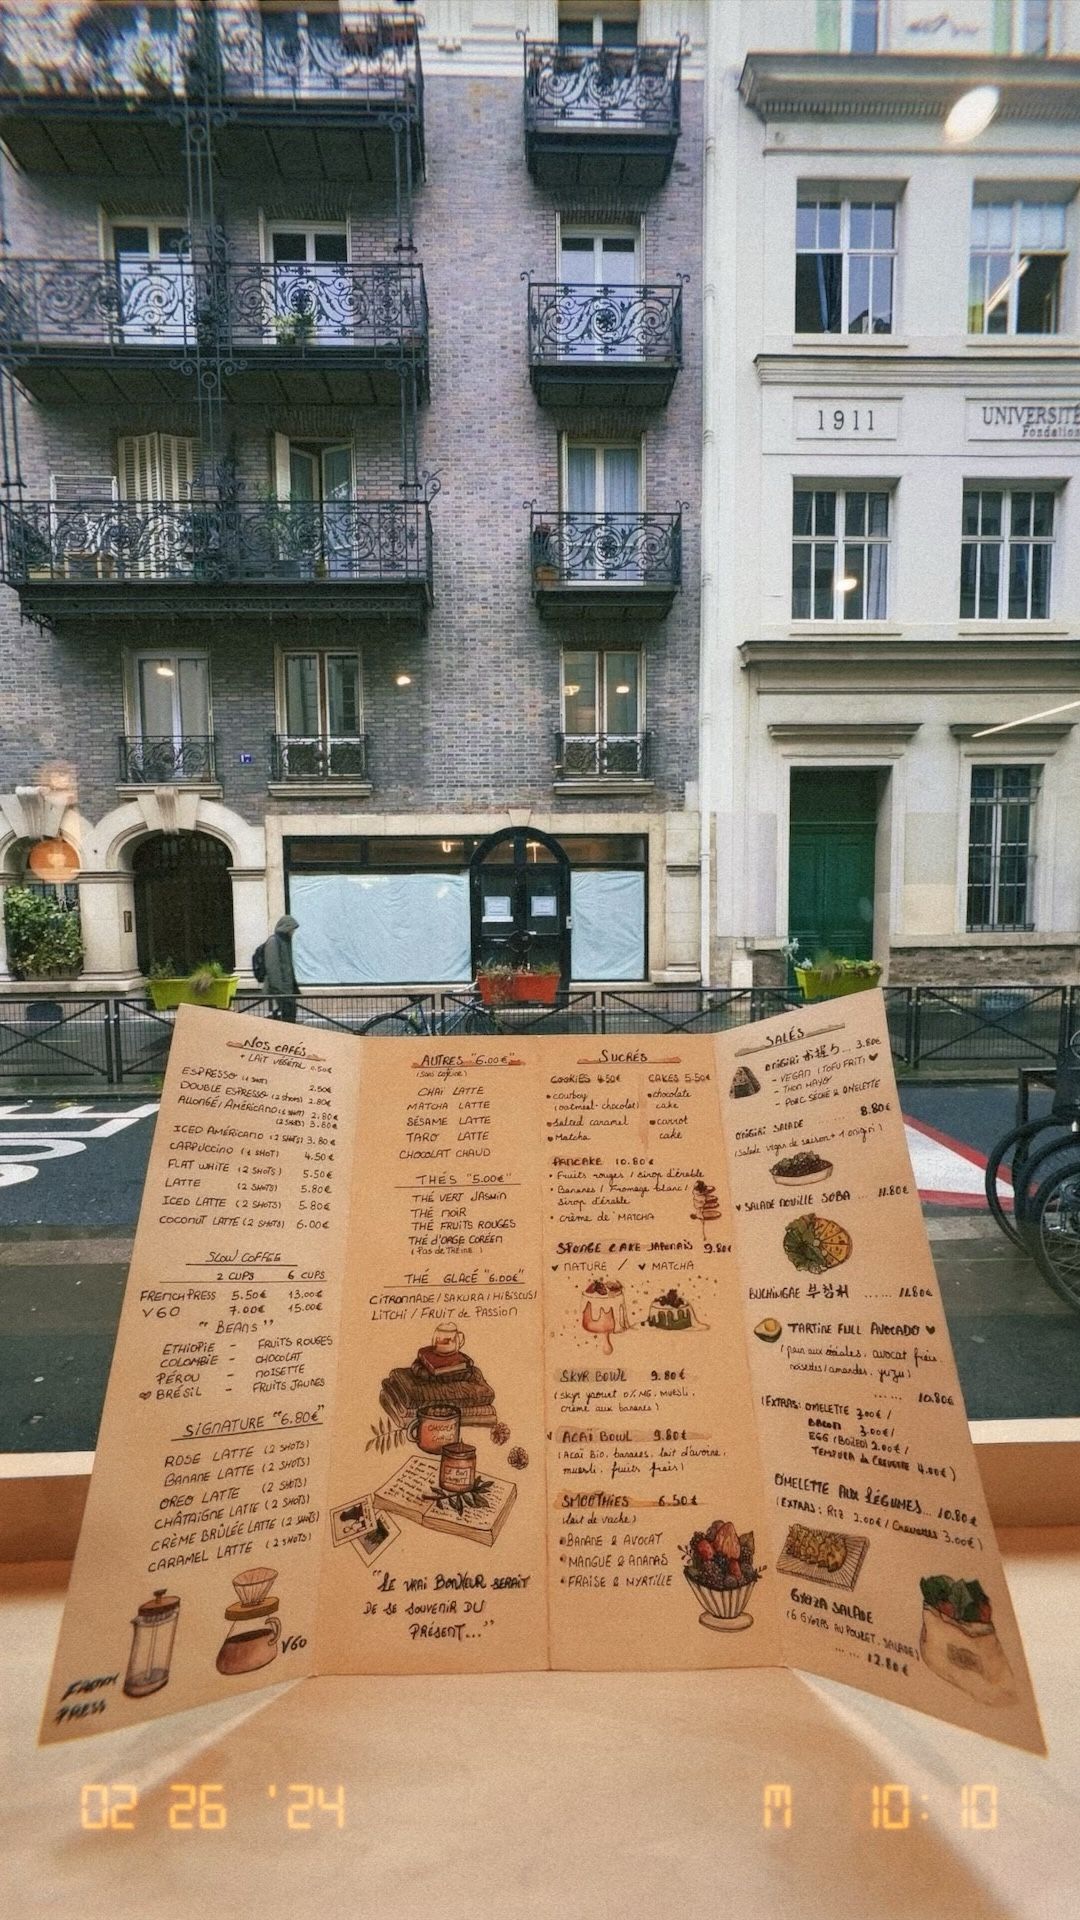 1911
UNIVERSITÉ
Fondation
NOS CAFÉS
• LAIT VÉGÉTAL 0.50€
ESPRESSO (1 SHOT) 2.50€
DOUBLE ESPRESSO (2 SHOTS) 2.80€
ALLONGÉ/AMÉRICANO (1 SHOT) 2.80€
(2 SHOTS) 3.80€
ICED AMÉRICANO (2 SHOTS) 3.80€
CAPPUCCINO (1 SHOT) 4.50€
FLAT WHITE (2 SHOTS) 5.50€
LATTE (2 SHOTS) 5.80€
ICED LATTE (2 SHOTS) 5.80€
COCONUT LATTE (2 SHOTS) 6.00€
SLOW COFFEE
2 CUPS 6 CUPS
FRENCH PRESS 5.50€ 13.00€
V60 7.00€ 15.00€
"BEANS"
ETHIOPIE - FRUITS ROUGES
COLOMBIE - CHOCOLAT
PÉROU - NOISETTE
BRÉSIL - FRUITS JAUNES
SIGNATURE "6.80€"
ROSE LATTE (2 SHOTS)
BANANE LATTE (2 SHOTS)
OREO LATTE (2 SHOTS)
CHÂTAIGNE LATTE (2 SHOTS)
CRÈME BRÛLÉE LATTE (2 SHOTS)
CARAMEL LATTE (2 SHOTS)
V60
PRESS
AUTRES "6.00€"
(Sans caféine)
CHAÏ LATTE
MATCHA LATTE
SÉSAME LATTE
TARO LATTE
CHOCOLAT CHAUD
THÉS "5.00€"
THÉ VERT JASMIN
THÉ NOIR
THÉ FRUITS ROUGES
THÉ D'ORGE CORÉEN
(Pas de THÉINE)
THÉ GLACÉ "6.00€"
CITRONNADE / SAKURA / HIBISCUS /
LITCHI / FRUIT de PASSION
CHOCOLAT
CHAUD
"LE VRAI BONHEUR SERAIT
DE SE SOUVENIR DU
PRÉSENT..."
SUCRÉS
COOKIES 4.50€ CAKES 5.50€
• cowboy • chocolate
(oatmeal-chocolat) cake
• salted caramel • carrot
• Matcha cake
PANCAKE 10.80€
• Fruits rouges / sirop d'érable
• Bananes / Fromage blanc /
Sirop d'érable
• crème de MATCHA
SPONGE CAKE JAPONAIS 9.80€
♥ NATURE / ♥ MATCHA
SKYR BOWL 9.80€
(skyr yaourt 0% MG, muesli,
crème aux bananes)
AÇAÏ BOWL 9.80€
(Açaï Bio, bananes, lait d'avoine,
muesli, fruits frais)
SMOOTHIES 6.50€
(lait de vache)
• BANANE & AVOCAT
• MANGUE & ANANAS
• FRAISE & MYRTILLE
SALÉS
ONIGIRI お握り ... 3.80€
- VEGAN (TOFU FRIT) ♥
- THON MAYO
- PORC SÉCHÉ & OMELETTE
ONIGIRI SALADE 8.80€
(Salade vegan de saison + 1 onigiri)
♥ SALADE NOUILLE SOBA ... 11.80€
BUCHIMGAE 부침개 ...... 11.80€
TARTINE FULL AVOCADO ♥
(pain aux céréales, avocat frais,
noisettes/amandes, yuzu)
...... 10.80€
(EXTRAS: OMELETTE 3.00€ /
BACON 3.00€ /
EGG (BOILED) 2.00€ /
TEMPURA de CREVETTE 4.00€)
OMELETTE AUX LÉGUMES... 10.80€
(EXTRAS: RIZ 2.00€ / Crevettes 3.00€)
GYOZA SALADE
(6 GYOZAS AU POULET, SALADE)
...... 12.80€
02 26 '24 M 10:10